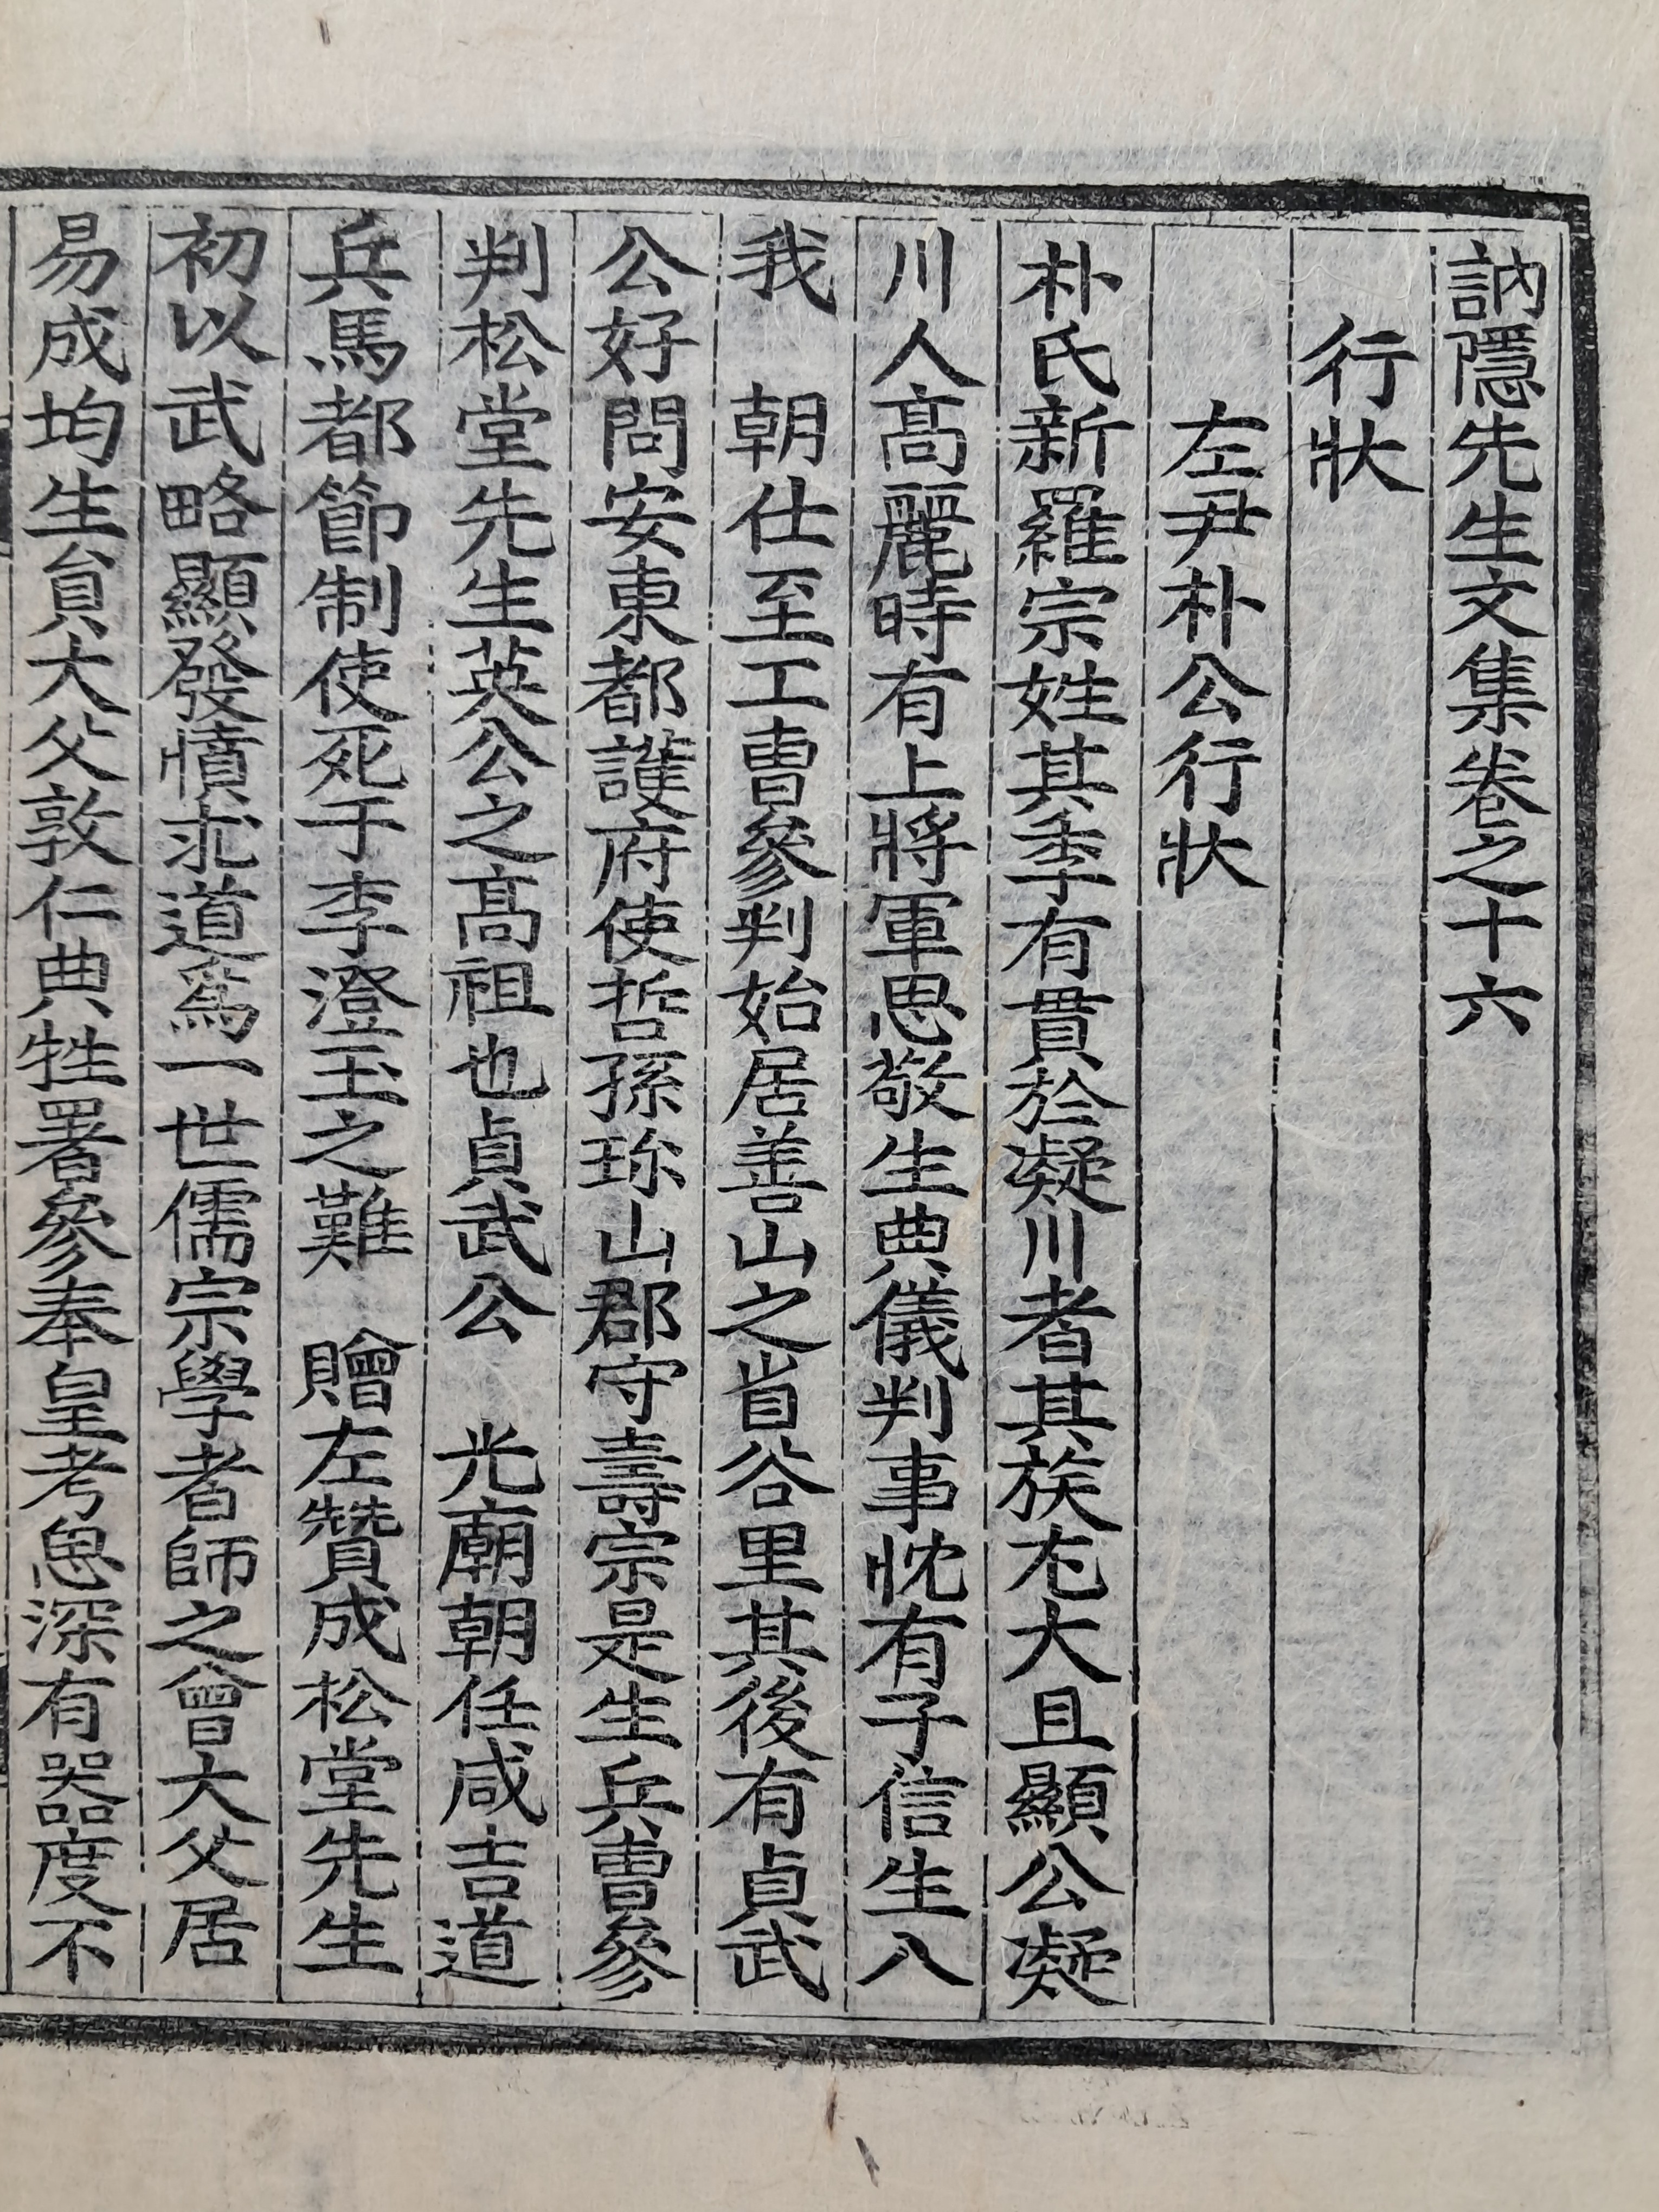 訥隱先生文集卷之十六
行狀
左尹朴公行狀
朴氏新羅宗姓其季有貫於凝川者其族尨大且顯公凝
川人高麗時有上將軍思敬生典儀判事忱有子信生八
我 朝仕至工曺參判始居善山之首谷里其後有貞武
公好問安東都護府使哲孫珎山郡守壽宗是生兵曺參
判松堂先生英公之高祖也貞武公 光廟朝任咸吉道
兵馬都節制使死于李澄玉之難 贈左贊成松堂先生
初以武略顯發憤求道爲一世儒宗學者師之曾大父居
易成均生員大父敦仁典牲署參奉皇考息深有器度不